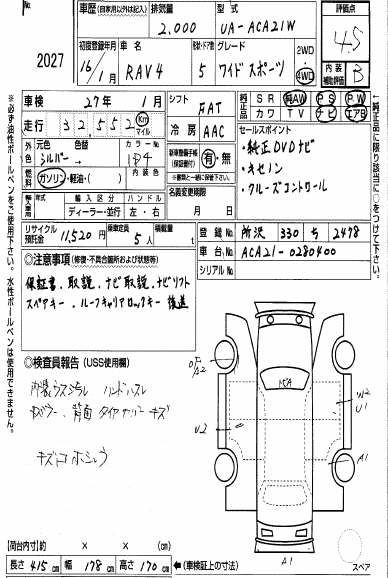 車歴(自家用以外は記入) 排気量 型式 評価点
2027 2,000 UA-ACA21W 4.5
初度登録年月 車名 ドア数 グレード
16/1月 RAV4 5 ワイドスポーツ 2WD・4WD 内装補助評価 B
車検 27年 1月 シフト FAT 純正品 SR AW PS PW
カワ TV ナビ エアB
走行 32,552 Km マイル 冷房 AAC セールスポイント
外装 元色 シルバー 色替 カラーNo. 1D4 新車整備手帳(保証書付) 有・無 ・純正DVDナビ
燃料 ガソリン・軽油・( ) 内装色 ・キセノン
・クルーズコントロール
輸入車 輸入区分 ハンドル 名義変更期限
ディーラー・並行 左・右 月 日
リサイクル預託金 11,520円 乗車定員 5人 積載量 t 登録No. 所沢 330 ち 2478
車台No. ACA21-0280400
シリアルNo.
◎注意事項(修復・不具合箇所および状態等)
保証書、取説、ナビ取説、ナビソフト
スペアキー、ルーフキャリアロックキー 後送
◎検査員報告(USS使用欄)
内装ウスシミ ハンドルスレ
背面タイヤカバー キズ
A2
W2
U1
U2
A1
A1
【荷台内寸】 × × (cm)
長さ 415cm 幅 178cm 高さ 170cm ←(車検証上の寸法)
スペア
※必ず油性ボールペンをご使用下さい。水性ボールペンは使用できません。
※純正品に限り該当に○をつけて下さい。